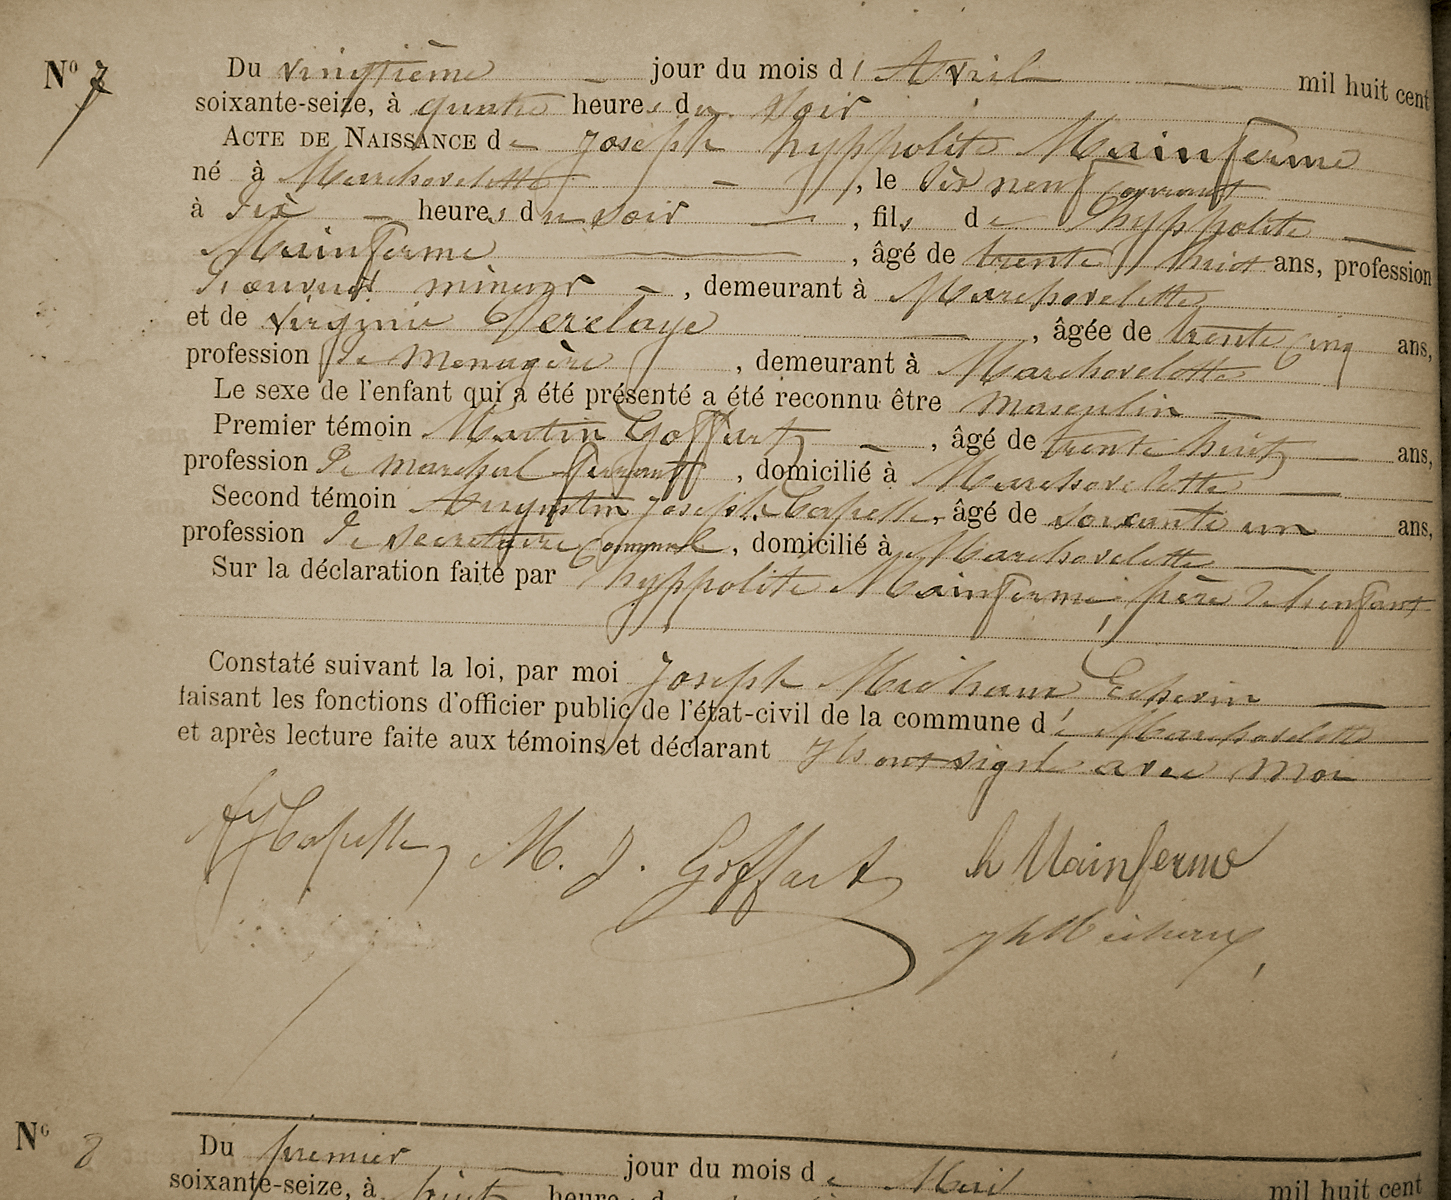 Nº 7
Du vingtième jour du mois d'Avril mil huit cent
soixante-seize, à quatre heures du soir
ACTE DE NAISSANCE de Joseph hyppolite Mainferme
né à Marchovelette, le dix neuf courant
à dix heures du soir, fils de hyppolite
Mainferme, âgé de trente huit ans, profession
d'ouvrier mineur, demeurant à Marchovelette
et de Virginie Derclaye, âgée de trente cinq ans,
profession de Menagère, demeurant à Marchovelette
Le sexe de l'enfant qui a été présenté a été reconnu être masculin
Premier témoin Martin Goffart, âgé de trente huit ans,
profession de marchal ferrant, domicilié à Marchovelette
Second témoin Augustin Joseph Capelle, âgé de soixante un ans,
profession de secretaire Communal, domicilié à Marchovelette
Sur la déclaration faite par hyppolite Mainferme, père de l'enfant
Constaté suivant la loi, par moi Joseph Michaux, Echevin
faisant les fonctions d'officier public de l'état-civil de la commune de Marchovelette
et après lecture faite aux témoins et déclarant Ils ont signé avec moi
AJ Capelle M. J. Goffart h Mainferme
Jh Michaux,
Nº 8
Du premier jour du mois de Mai mil huit cent
soixante-seize, à huit heures d